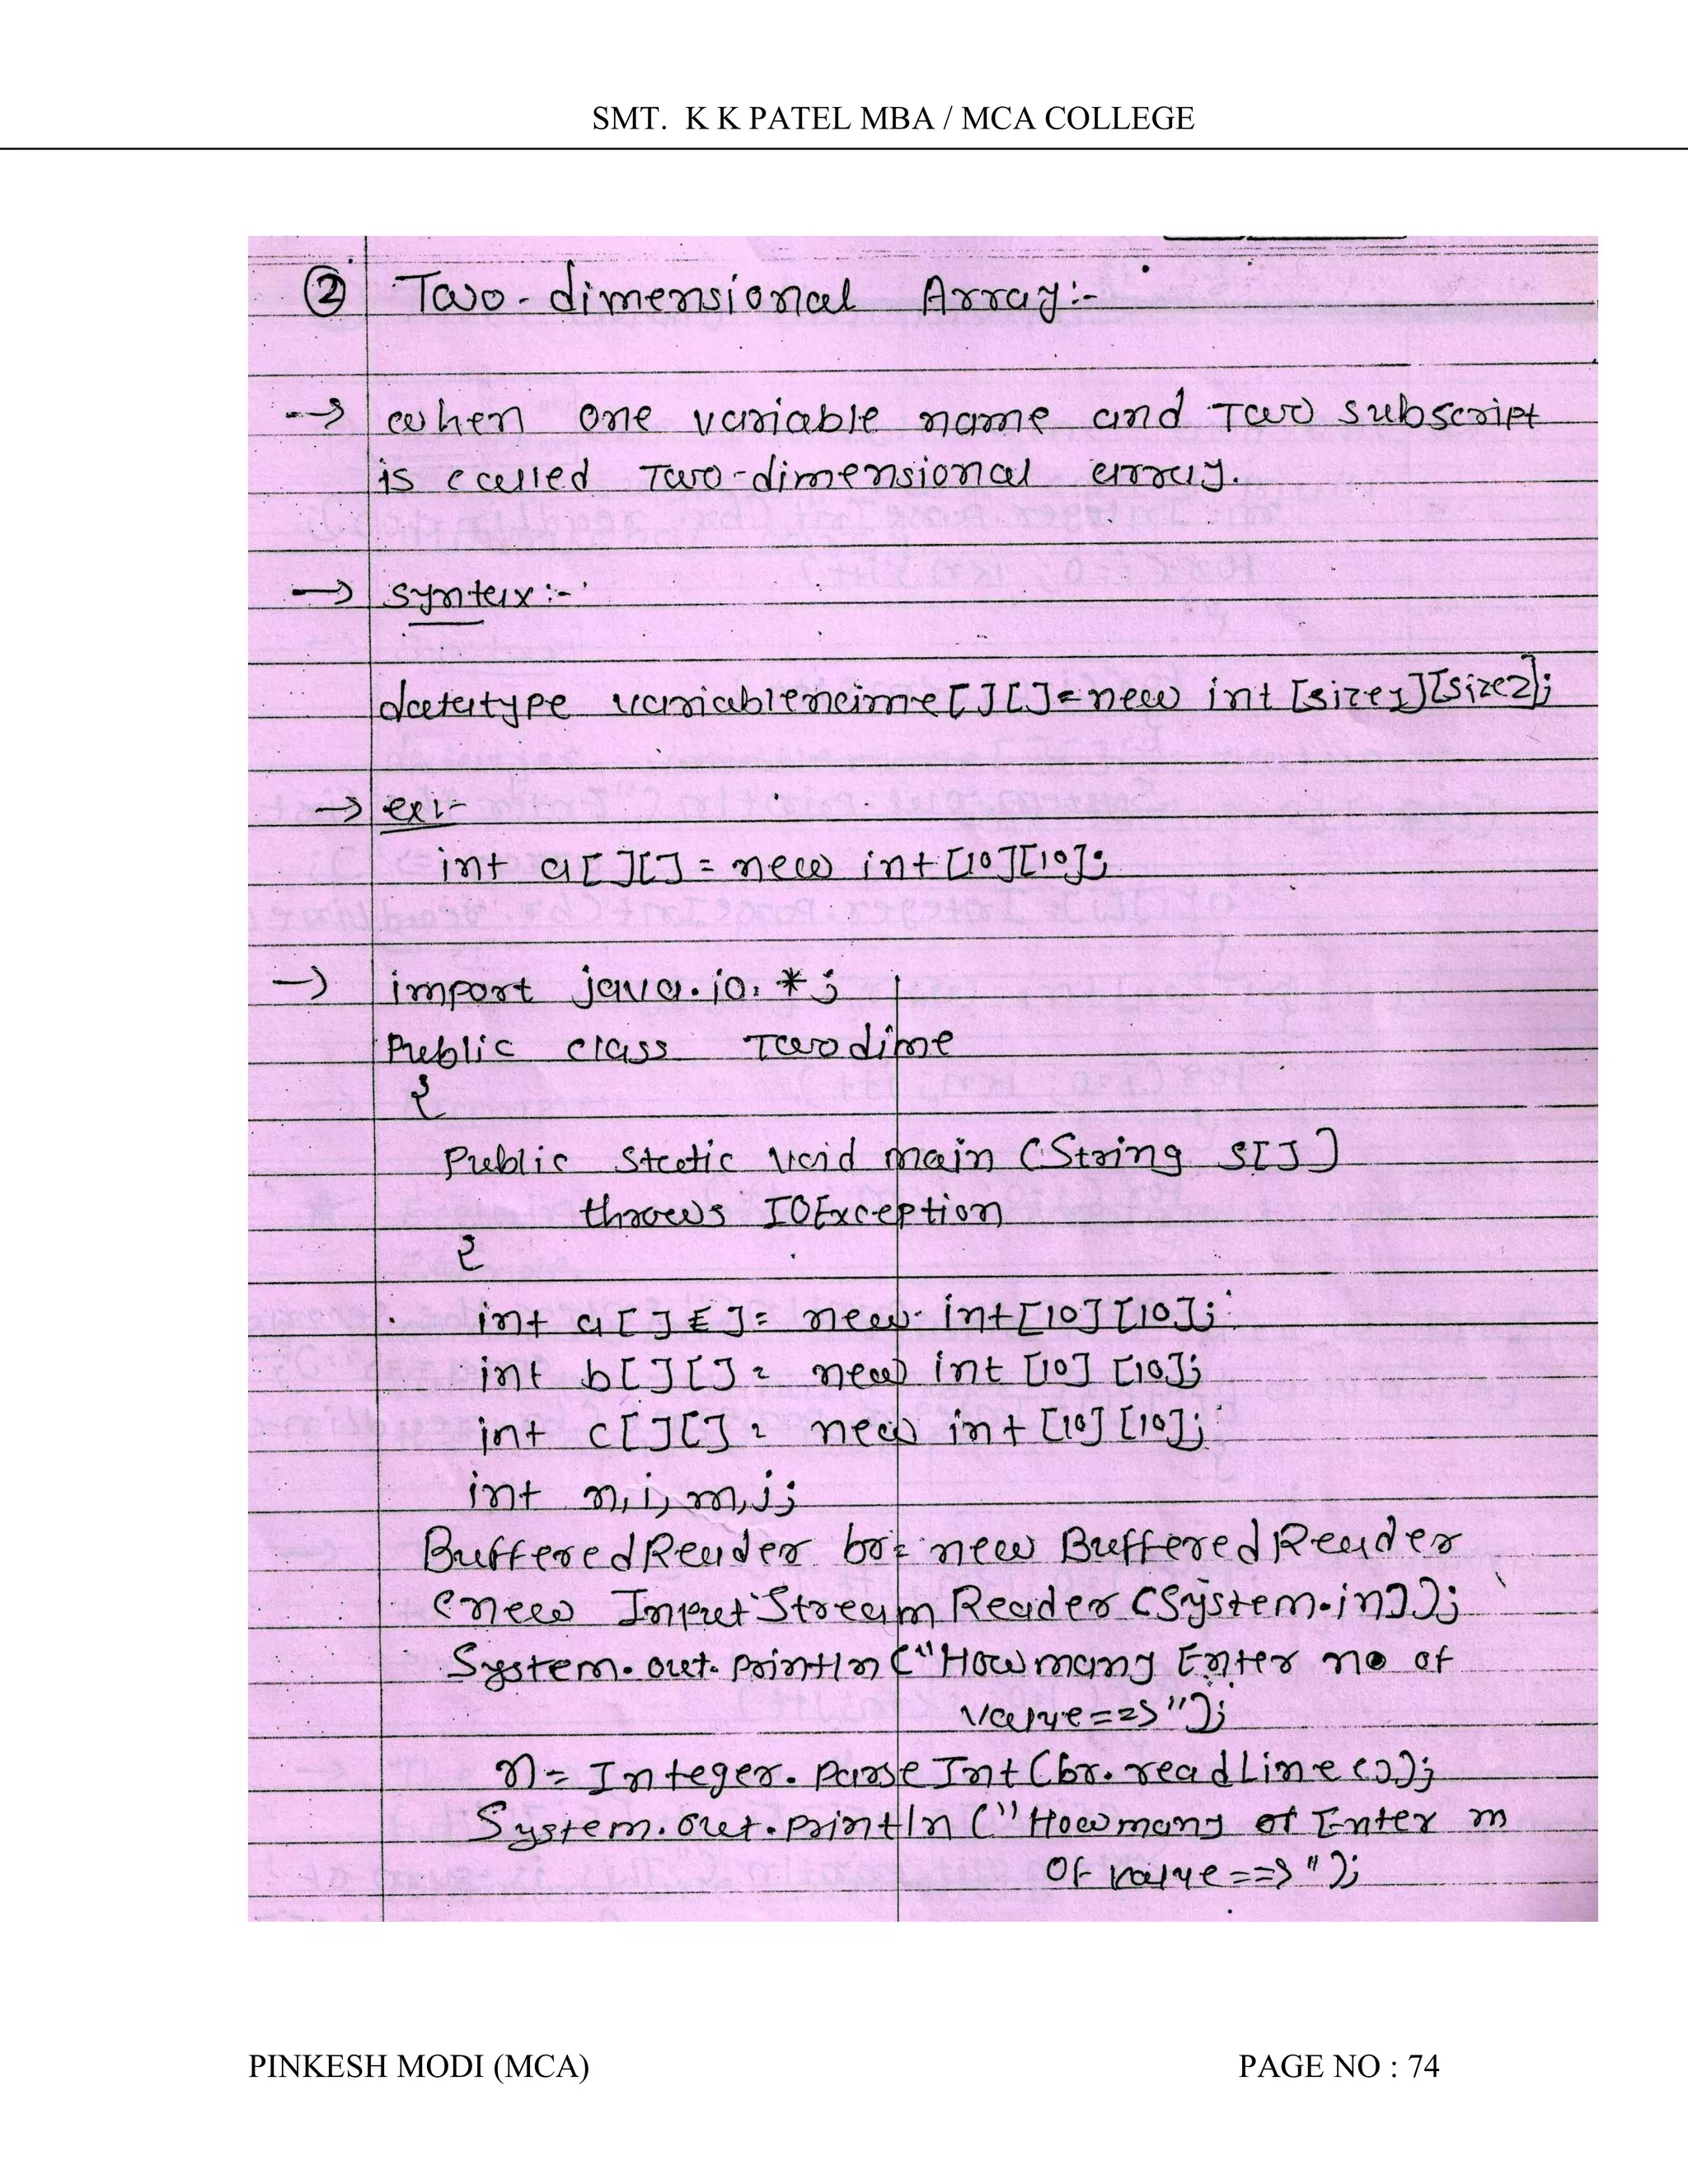 SMT. K K PATEL MBA / MCA COLLEGE
② Two-dimensional Array:-
→ when one variable name and Two subscript
is called Two-dimensional array.
→ syntax:-
datatype variablename[][]=new int [size1][size2];
→ ex:-
int a[][]=new int[10][10];
→ import java.io.*;
Public class Twodime
{
Public static void main (String s[])
throws IOException
{
int a[][]= new int[10][10];
int b[][]= new int [10] [10];
int c[][]= new int [10] [10];
int n, i, m, j;
BufferedReader br= new BufferedReader
(new InputStreamReader (System.in));
System.out.println ("How many Enter no of
value==>");
n= Integer.parseInt(br.readLine());
System.out.println ("How many of Enter m
of value==>");
PINKESH MODI (MCA) PAGE NO : 74